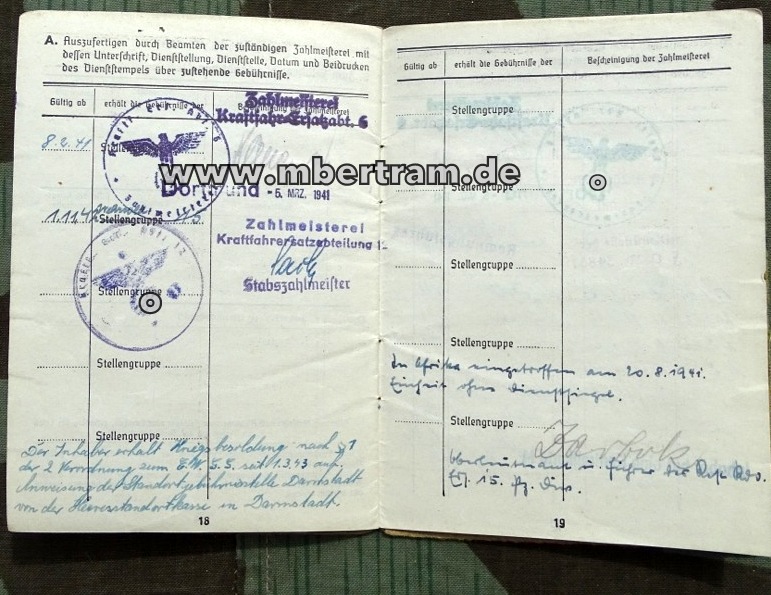 A. Auszufertigen durch Beamten der zuständigen Zahlmeisterei mit
dessen Unterschrift, Dienststellung, Dienststelle, Datum und Beidrucken
des Dienststempels über zustehende Gebührnisse.
Gültig ab erhält die Gebührnisse der
Zahlmeisterei
Kraftfahr-Ersatzabt. 6
8.2.41
www.mbertram.de
Dortmund - 6. MRZ. 1941
1.11.42 Stellengruppe
Zahlmeisterei
Kraftfahrersatzabteilung 12
Stabszahlmeister
Stellengruppe
Stellengruppe
Stellengruppe
Der Inhaber erhält Kriegsbesoldung nach § 1
der 2 Verordnung zum E.W.G.G. seit 1.3.43 auf
Anweisung der Standortgebührnisstelle Darmstadt
von der Heeresstandortkasse in Darmstadt.
18
Gültig ab erhält die Gebührnisse der Bescheinigung der Zahlmeisterei
Stellengruppe
Stellengruppe
Stellengruppe
Stellengruppe
Stellengruppe
In Afrika eingetroffen am 20.8.1941.
Einheit ohne Dienstsiegel.
Stellengruppe
Oberleutnant u. Führer der
15. Pz. Div.
19